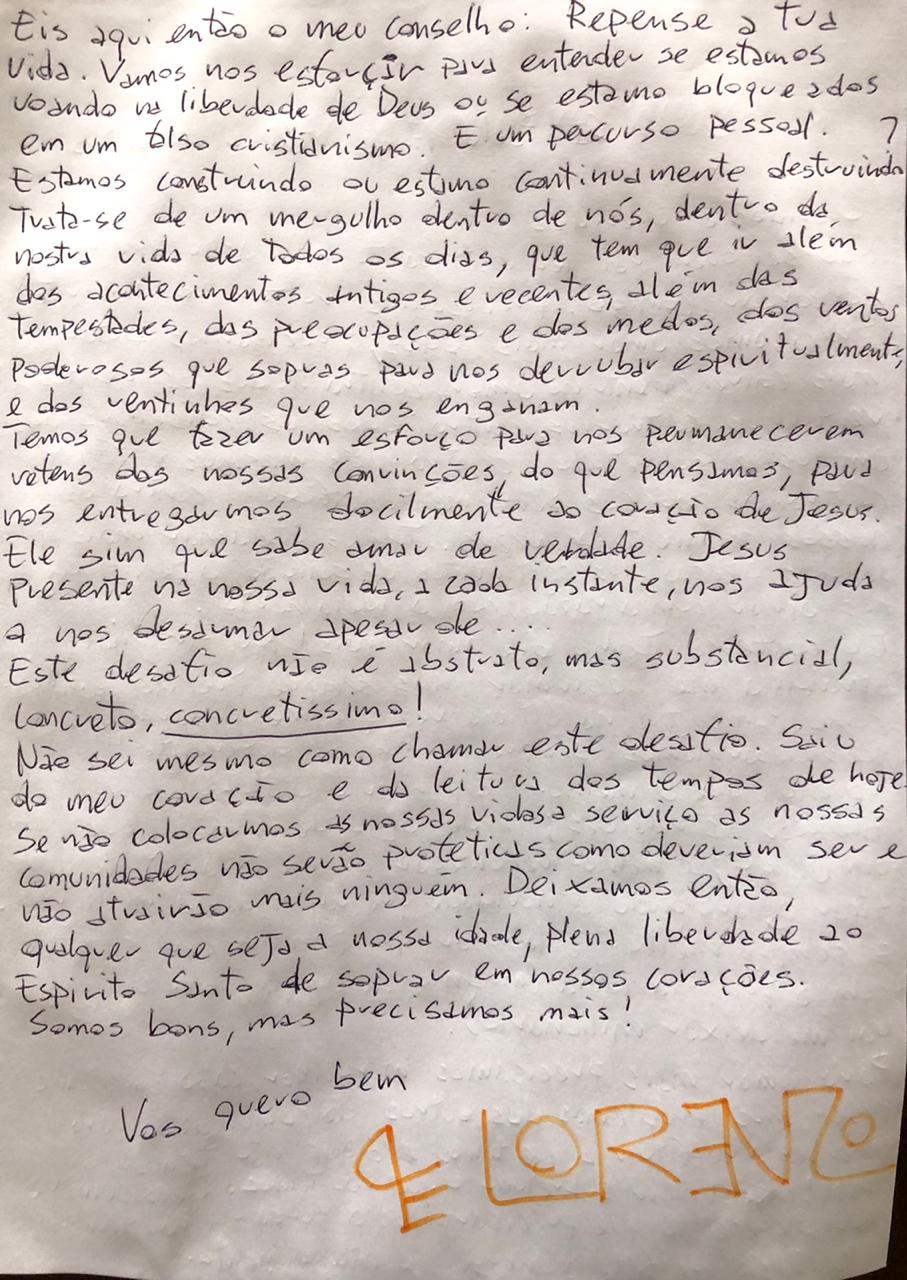 Eis aqui então o meu conselho: Repense a tua
vida. Vamos nos esforçar para entender se estamos
voando na liberdade de Deus ou se estamo bloqueados
em um falso cristianismo. E um percurso pessoal.
Estamos construindo ou estamo continuamente destruindo?
Trata-se de um mergulho dentro de nós, dentro da
nostra vida de todos os dias, que tem que ir além
dos acontecimentos antigos e recentes, além das
tempestades, das preocupações e dos medos, dos ventos
poderosos que sopras para nos derrubar espiritualmente,
e dos ventinhos que nos enganam.
Temos que fazer um esforço para nos permanecerem
refens das nossas convinções, do que pensamos, para
nos entregarmos docilmente ao coração de Jesus.
Ele sim que sabe amar de verdade. Jesus
presente na nossa vida, a cada instante, nos ajuda
a nos desarmar apesar de ....
Este desafio não é abstrato, mas substancial,
concreto, concretissimo!
Não sei mesmo como chamar este desafio. Saiu
do meu coração e da leitura dos tempos de hoje.
Se não colocarmos as nossas vidas a serviço as nossas
comunidades não serão profeticas como deveriam ser e
não atrairão mais ninguém. Deixamos então,
qualquer que seja a nossa idade, plena liberdade ao
Espirito Santo de soprar em nossos corações.
Somos bons, mas precisamos mais!
Vos quero bem
LORENZO